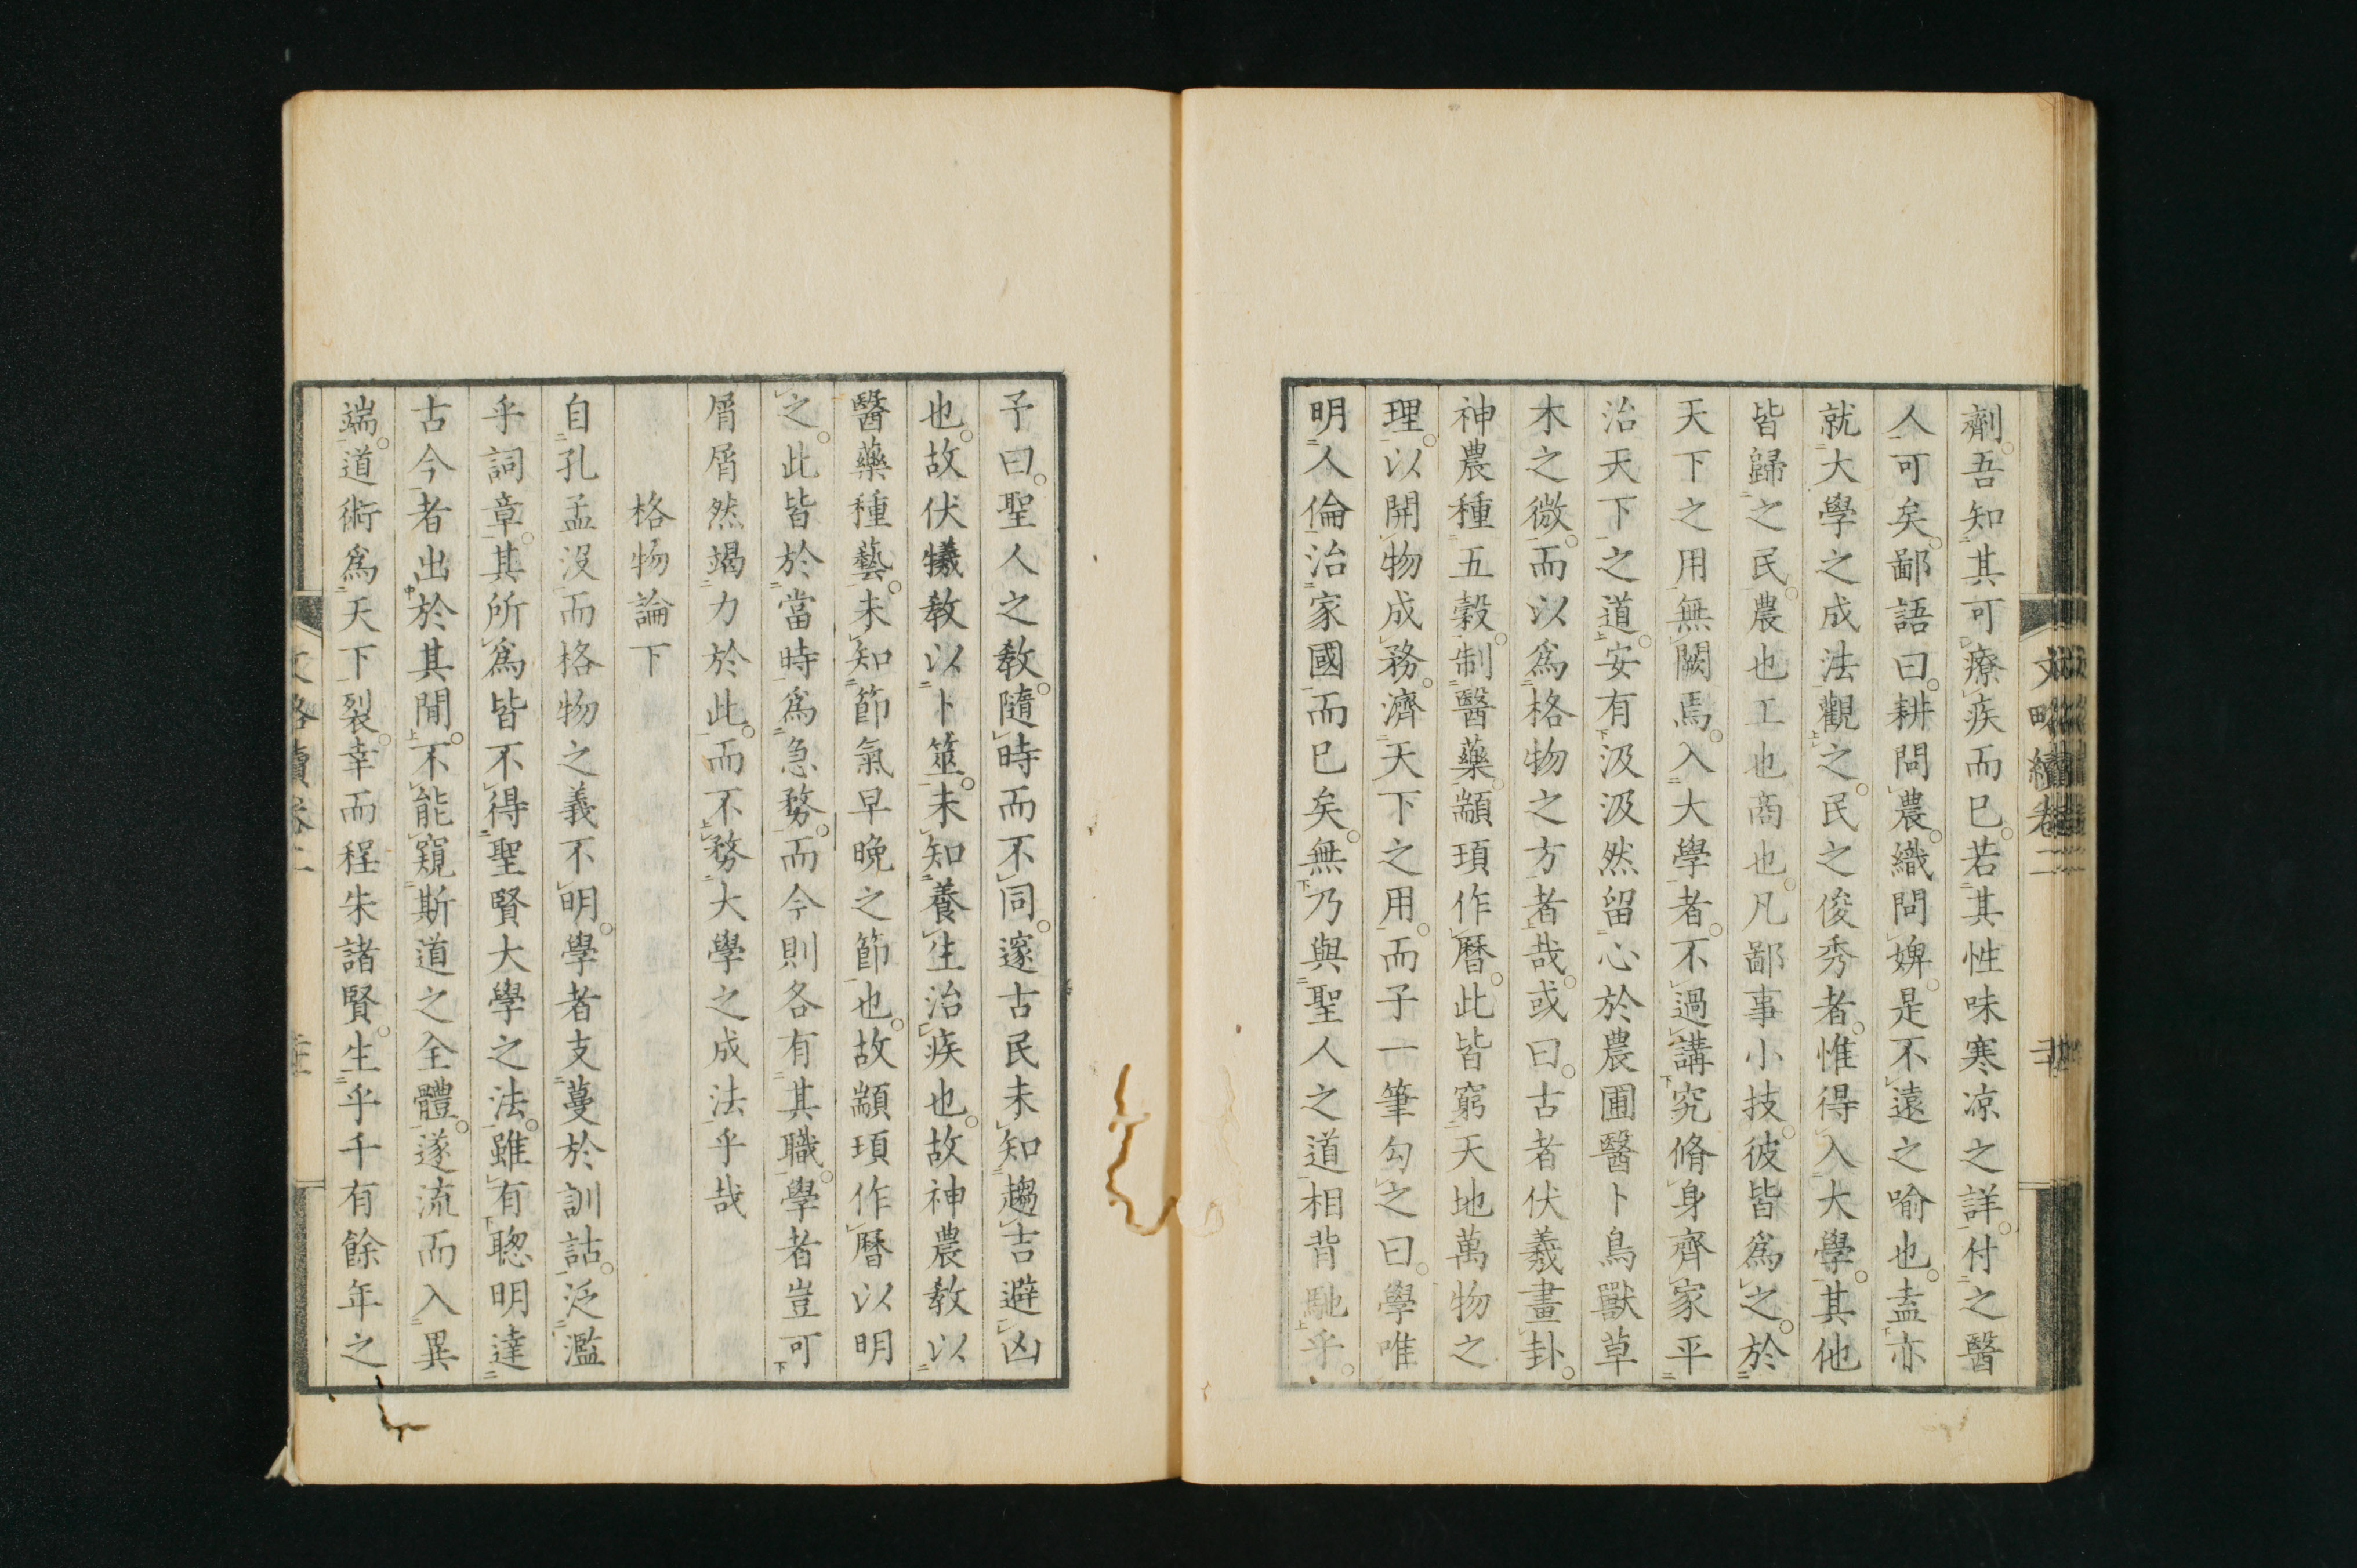 劑。吾知其可療疾而已。若其性味寒凉之詳。付之醫
人可矣。鄙語曰。耕問農。織問婢。是不遠之喻也。盍亦
就大學之成法觀之。民之俊秀者。惟得入大學。其他
皆歸之民。農也工也商也。凡鄙事小技。彼皆爲之。於
天下之用無闕焉。入大學者。不過講究脩身齊家平
治天下之道。安有汲汲然留心於農圃醫卜鳥獸草
木之微。而以爲格物之方者哉。或曰。古者伏羲畫卦。
神農種五穀。制醫藥。顓頊作曆。此皆窮天地萬物之
理。以開物成務。濟天下之用。而子一筆勾之曰。學唯
明人倫治家國而已矣。無乃與聖人之道相背馳乎。
文略續卷二
子曰。聖人之教。隨時而不同。邃古民未知趨吉避凶
也。故伏犧教以卜筮。未知養生治疾也。故神農教以
醫藥種藝。未知節氣早晚之節也。故顓頊作曆以明
之。此皆於當時爲急務。而今則各有其職。學者豈可
屑屑然竭力於此。而不務大學之成法乎哉
格物論下
自孔孟沒而格物之義不明。學者支蔓於訓詁。泛濫
乎詞章。其所爲皆不得聖賢大學之法。雖有聰明達
古今者出於其閒。不能窺斯道之全體。遂流而入異
端。道術爲天下裂。幸而程朱諸賢。生乎千有餘年之